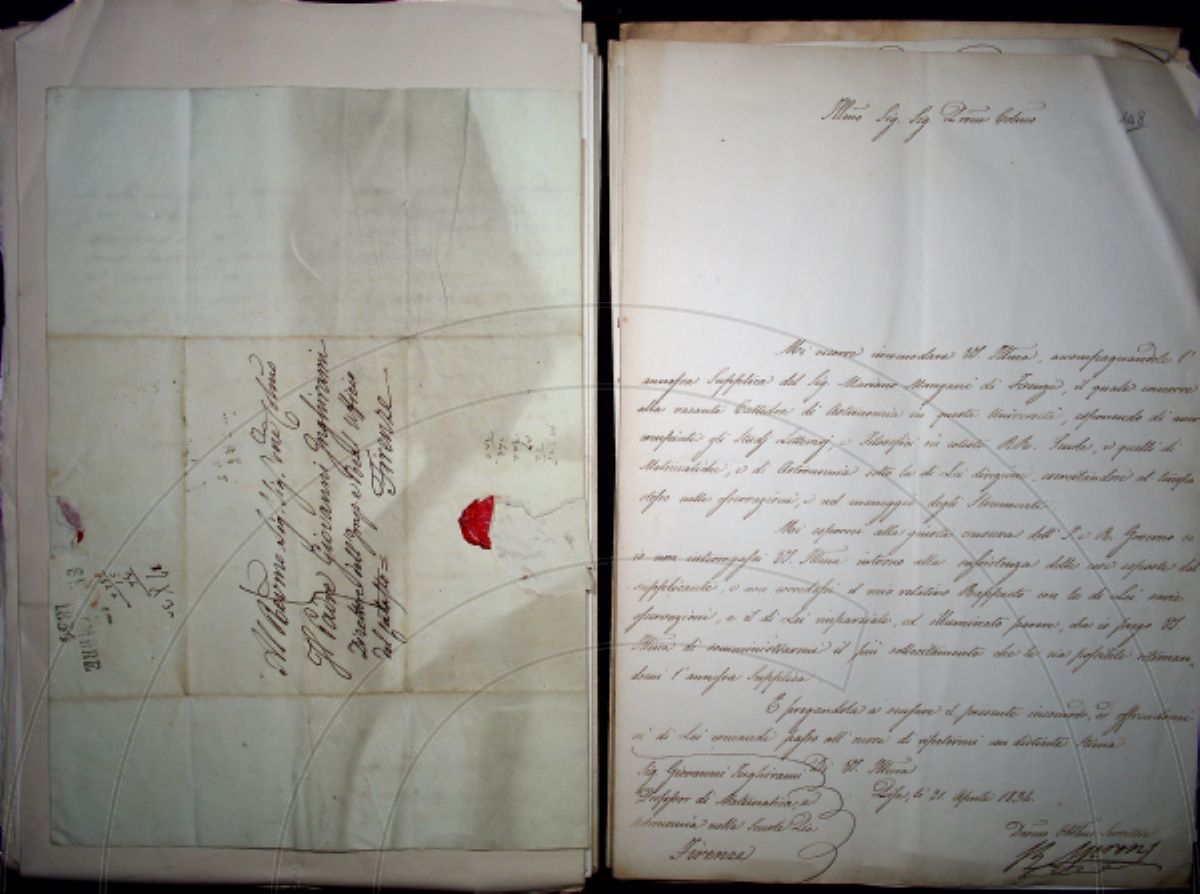 All Ill.mo Sig. Sig. P.ne Col.mo
Il Padre Giovanni Inghirami
Direttore dell'Imp. e Real Ufizio
del
Firenze
1834
Illmo Sig. Sig. Prone Colmo
198
Mi occorre incomodare VS Illma, accompagnandole l'
annessa Supplica del Sig. Mariano di Firenze, il quale concorre
alla vacante Cattedra di Astronomia in questa Università, esponendo di aver
compiuti gli Studj Letterarj, e Filosofici in coteste Scuole, e quelli di
Matematiche, e di Astronomia sotto la di Lei direzione, esercitandosi al tempo
stesso nelle osservazioni, e nel maneggio degli Strumenti.
Mi esporrei alla giusta censura dell' I. e R. Governo se
io non interrogassi VS. Illma intorno alla sussistenza delle cose esposte dal
supplicante, e non corredassi il mio relativo Rapporto con le di Lei savie
osservazioni, e il di Lei imparziale, ed illuminato parere, che io prego VS.
Illma di somministrarmi il più sollecitamente che le sia possibile ritornan
domi l' annessa Supplica
E pregandola a scusare il presente incomodo, ed
di Lei comandi passo all' onore di ripetermi con distinta stima
Di VS. Illma
Pisa, li 21. Aprile 1834.
Sig. Giovanni Inghirami
Professor di Matematica, e
Astronomia nelle Scuole Pie
Firenze
Devmo Obblmo Servitore